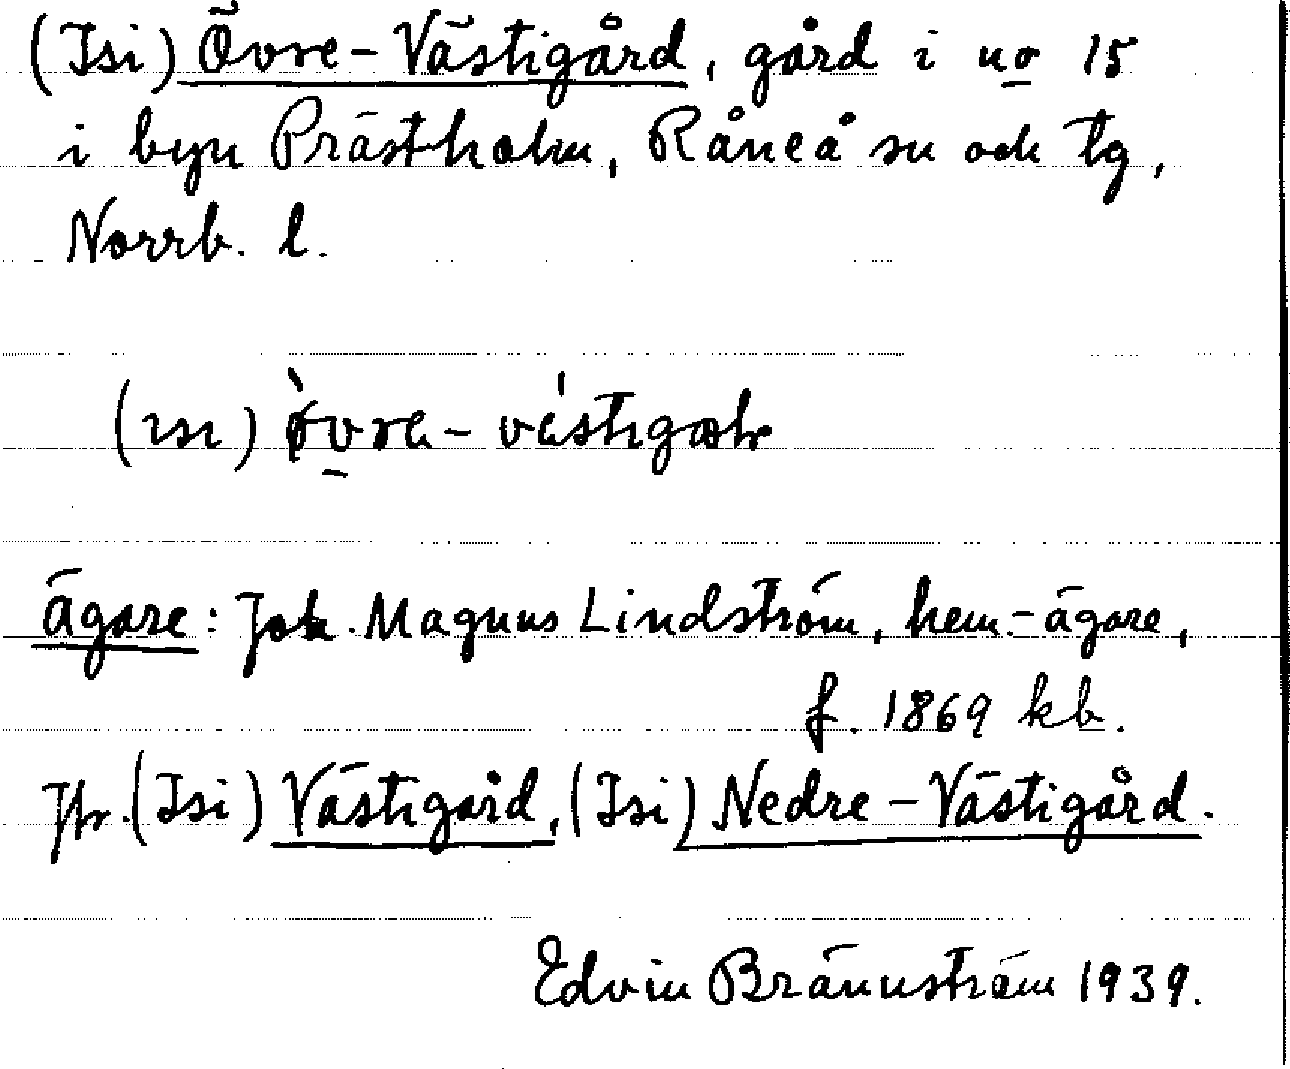 (Isi) Övre-Västigård, gård i no 15
i byn Prästholm, Råneå sn och tg,
Norrb. l.
(ısı)
ägare: Joh. Magnus Lindström, hem.-ägare,
f. 1869 kb.
Jfr. (Isi) Västigård, (Isi) Nedre-Västigård.
Edvin Brännström 1939.